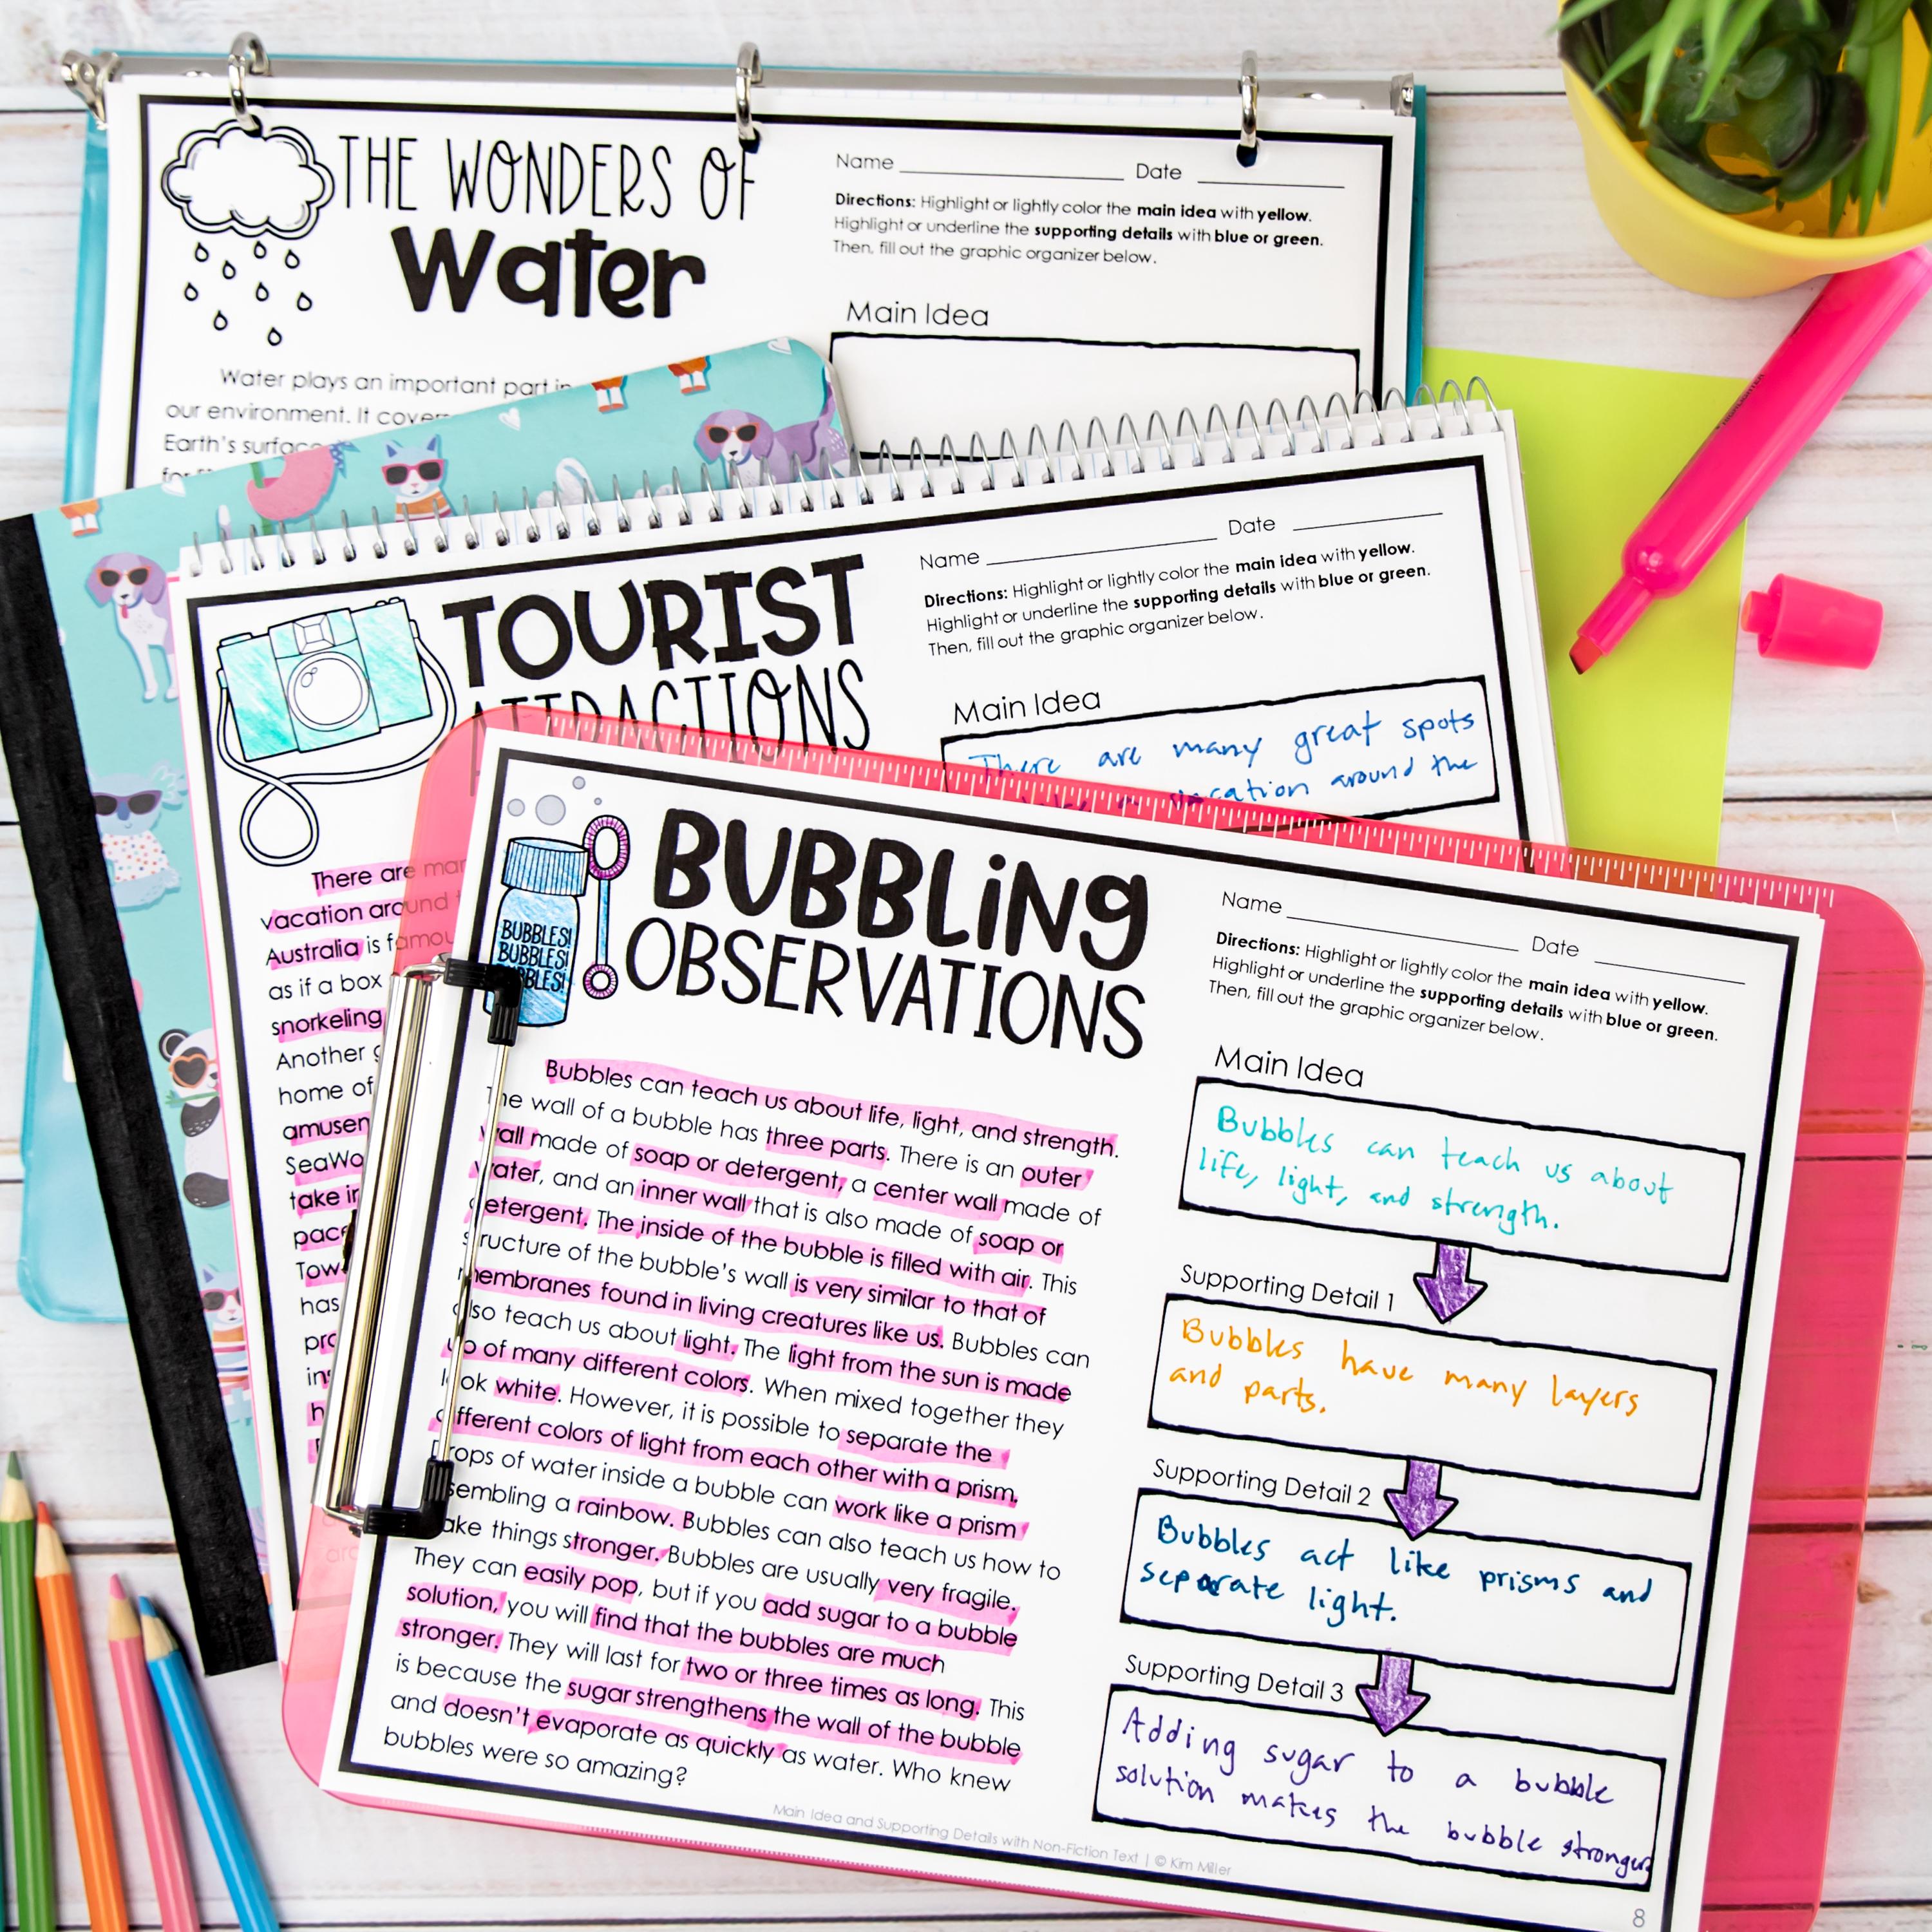 THE WONDERS OF
Water
Name Date
Directions: Highlight or lightly color the main idea with yellow.
Highlight or underline the supporting details with blue or green.
Then, fill out the graphic organizer below.
Main Idea
Water plays an important part in
our environment. It covers
Earth's surface
for
TOURIST
ATTRACTIONS
Name Date
Directions: Highlight or lightly color the main idea with yellow.
Highlight or underline the supporting details with blue or green.
Then, fill out the graphic organizer below.
Main Idea
There are many great spots
vacation around the
There are
vacation around
Australia is famou
as if a box
snorkeling
Another
home of
amusem
SeaWo
take in
pace
Tow
has
pro
in
h
BUBBLES!
BUBBLES!
BUBBLES!
BUBBLiNg
OBSERVATIONS
Name Date
Directions: Highlight or lightly color the main idea with yellow.
Highlight or underline the supporting details with blue or green.
Then, fill out the graphic organizer below.
Bubbles can teach us about life, light, and strength.
The wall of a bubble has three parts. There is an outer
wall made of soap or detergent, a center wall made of
water, and an inner wall that is also made of soap or
detergent. The inside of the bubble is filled with air. This
structure of the bubble's wall is very similar to that of
membranes found in living creatures like us. Bubbles can
also teach us about light. The light from the sun is made
up of many different colors. When mixed together they
look white. However, it is possible to separate the
different colors of light from each other with a prism.
Drops of water inside a bubble can work like a prism
sembling a rainbow. Bubbles can also teach us how to
make things stronger. Bubbles are usually very fragile.
They can easily pop, but if you add sugar to a bubble
solution, you will find that the bubbles are much
stronger. They will last for two or three times as long. This
is because the sugar strengthens the wall of the bubble
and doesn't evaporate as quickly as water. Who knew
bubbles were so amazing?
Main Idea
Bubbles can teach us about
life, light, and strength.
Supporting Detail 1
Bubbles have many layers
and parts.
Supporting Detail 2
Bubbles act like prisms and
separate light.
Supporting Detail 3
Adding sugar to a bubble
solution makes the bubble stronger.
Main Idea and Supporting Details with Non-Fiction Text | © Kim Miller
8